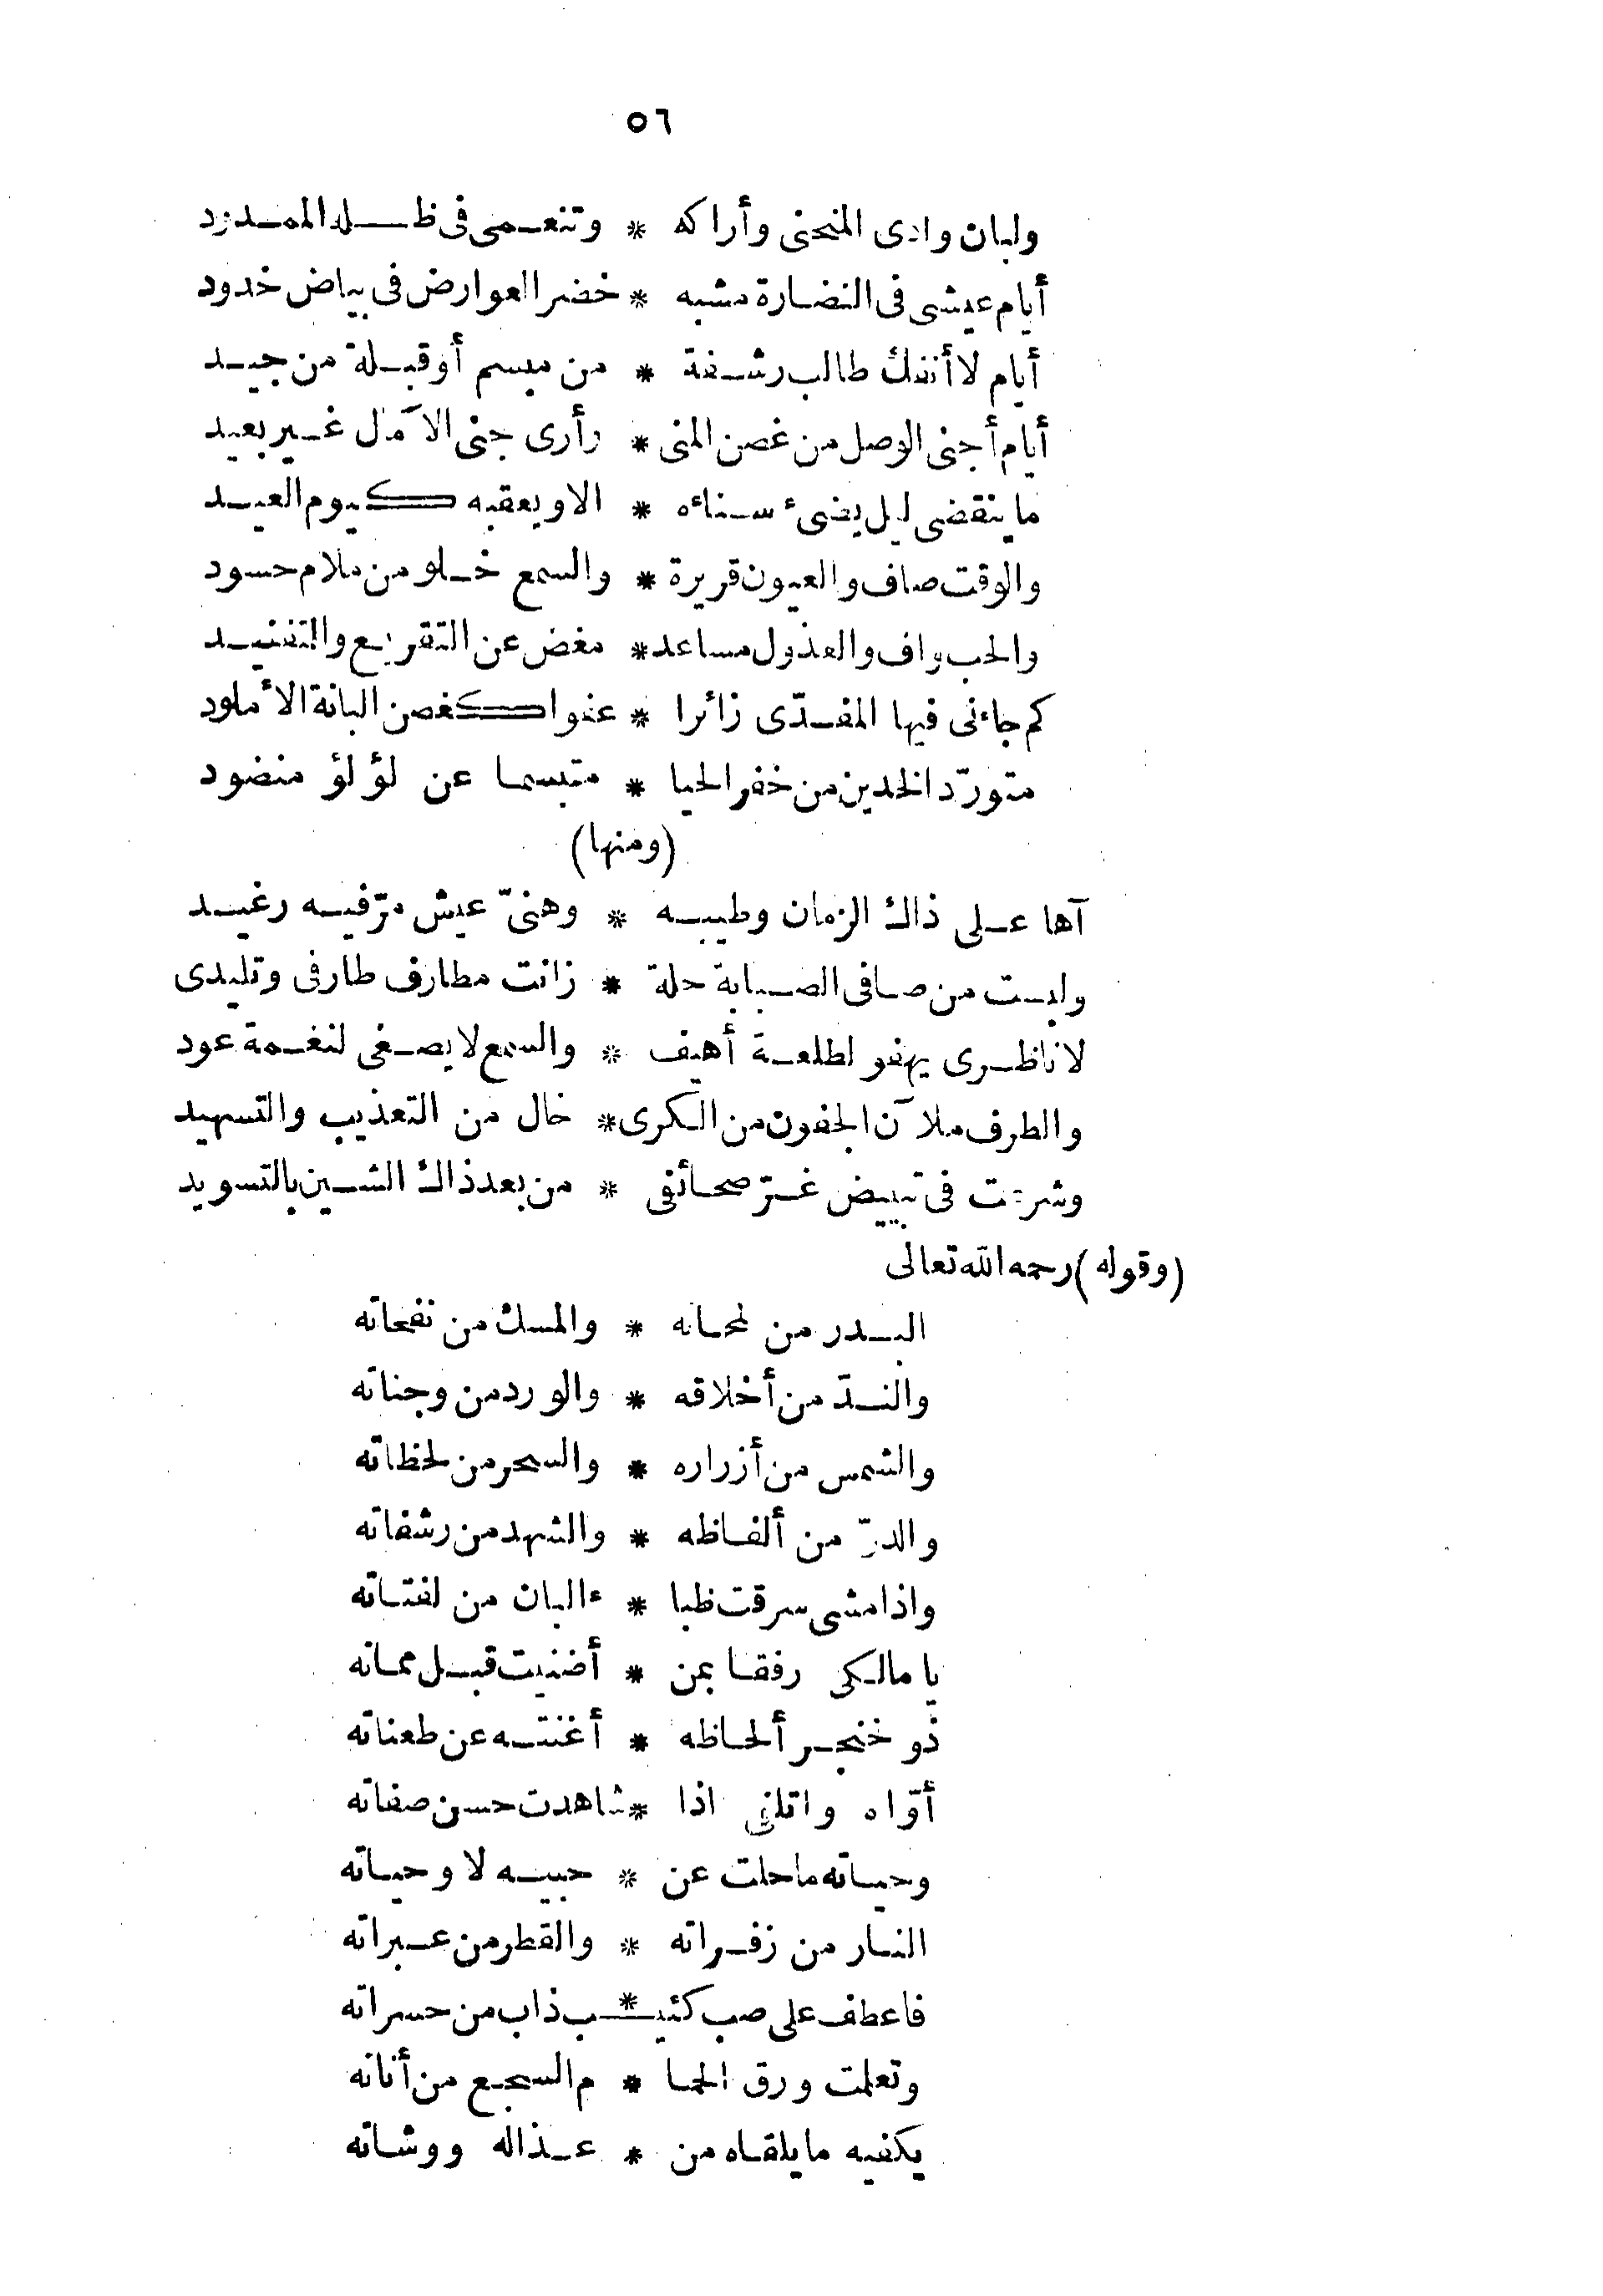 ٥٦
ولبان وادى المنحنى وأراكه * وتنعمى فى ظله الممدود
أيام عيشى فى النضارة مشبه * خضر العوارض فى بياض خدود
أيام لا أنفك طالب رشفة * من مبسم أو قبلة من جيد
أيام أجنى الوصل من غصن المنى * وأرى جنى الآمال غير بعيد
ما ينقضى ليل يضىء سناءه * الا ويعقبه كيوم العيد
والوقت صاف والعيون قريرة * والسمع خلو من ملام حسود
والحب واف والعذول مساعد * مغض عن التقريع والتفنيد
كم جاءنى فيها المفدّى زائرا * عفوا كغصن البانة الأملود
متورّد الخدين من خفر الحيا * متبسما عن لؤلؤ منضود
(ومنها)
آها على ذاك الزمان وطيبه * وهنىّ عيش مرّ فيه رغيد
ولبست من صافى الصبابة حلة * زانت مطارف طارفى وتليدى
لا ناظرى يهفو لطلعة أهيف * والسمع لا يصغى لنغمة عود
والطرف ملآن الجفون من الكرى * خال من التعذيب والتسهيد
وشرعت فى تبييض غرّ صحائفى * من بعد ذاك الشين بالتسويد
(وقوله) رحمه الله تعالى
البدر من لمحاته * والمسك من نفحاته
والندّ من أخلاقه * والورد من وجناته
والشمس من أزراره * والسحر من لحظاته
والدرّ من ألفاظه * والشهد من رشفاته
واذا مشى سرقت ظبا * ء البان من لفتاته
يا مالكى رفقا بمن * أضنيت قبل مماته
ذو خنجر ألحاظه * أغنته عن طعناته
أوّاه واتلفى اذا * شاهدت حسن صفاته
وحياته ما حلت عن * حبيه لا وحياته
النار من زفراته * والقطر من عبراته
فاعطف على صب كئيـ * ـب ذاب من حسراته
وتعلمت ورق الحما * م السجع من أناته
يكفيه ما يلقاه من * عذاله ووشاته